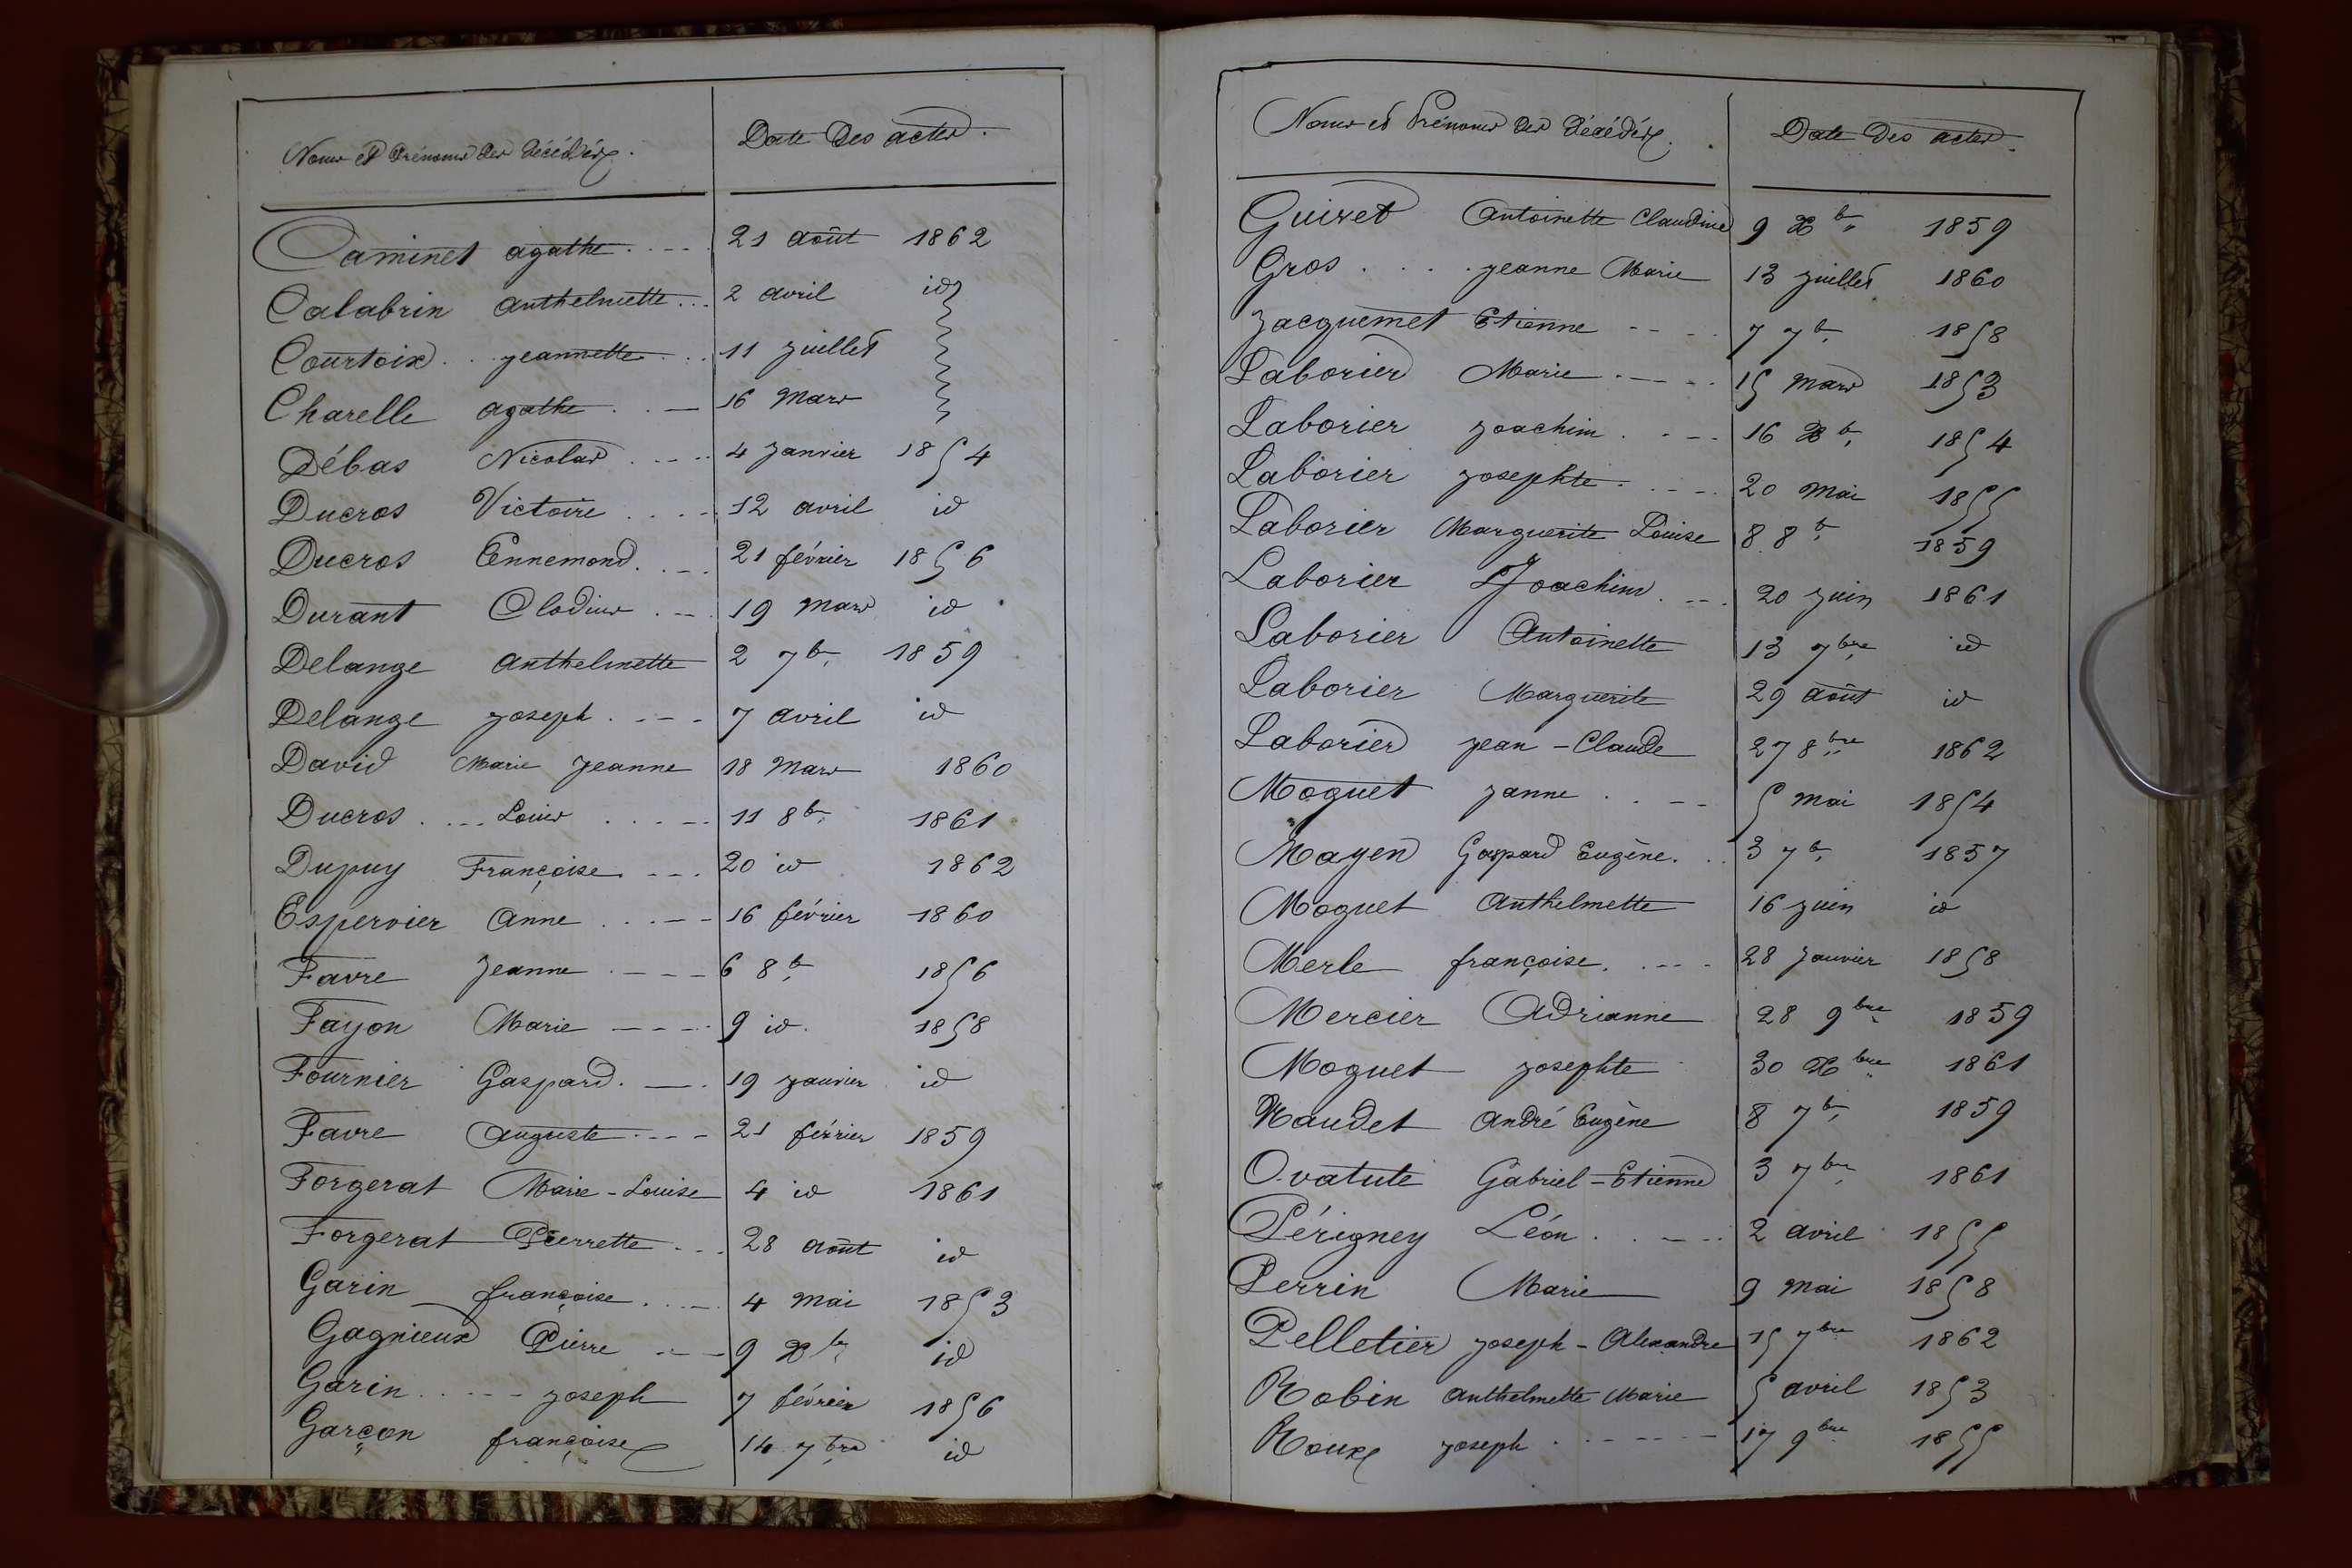 Noms et Prénoms des Décédés. Date des actes.
Caminet agathe .... 21 août 1862
Calabrin anthelmette ... 2 avril id
Courtoix .. jeannette ... 11 juillet
Charelle agathe .. — 16 Mars
Débas Nicolas .... 4 janvier 1854
Ducros Victoire .... 12 avril id
Ducros Ennemond .... 21 février 1856
Durant Clodius ... 19 Mars id
Delange anthelmette 2 7b. 1859
Delange joseph .... 7 avril id
David Marie Jeanne 18 Mars 1860
Ducros .... Louis .... 11 8b. 1861
Dupuy Françoise .... 20 id 1862
Espervier anne .... 16 février 1860
Favre Jeanne .... 6 8b. 1856
Fayon Marie .... 9 id. 1858
Fournier Gaspard. — . 19 janvier id
Favre Auguste .... 21 février 1859
Forgerat Marie-Louise 4 id 1861
Forgerat Pierrette ... 28 août id
Garin françoise .... 4 mai 1853
Gagnieux Pierre ... 9 Xb. id
Garin ..... joseph 7 février 1856
Garçon françoise 14 7bre id
Noms et Prénoms des Décédés. Date des actes.
Guiret Antoinette Claudine 9 Xb. 1859
Gros .... jeanne Marie 13 juillet 1860
Jacquemet Etienne .... 7 7b. 1858
Laborier Marie .... 15 mars 1853
Laborier joachim .... 16 Xb. 1854
Laborier josephte .... 20 mai 1855
Laborier Marguerite Louise 8 8b. 1859
Laborier Joachim .... 20 juin 1861
Laborier Antoinette 13 7bre id
Laborier Marguerite 29 août id
Laborier jean-Claude 27 8bre 1862
Moguet janne .... 5 mai 1854
Mayen Gaspard Eugène. .. 3 7b. 1857
Moguet Anthelmette 16 juin id
Merle françoise .... 28 janvier 1858
Mercier Adrianne 28 9bre 1859
Moguet josephte 30 Xbre 1861
Naudet André Eugène 8 7b. 1859
Ovatute Gabriel-Etienne 3 7bre 1861
Périgney Léon .... 2 avril 1855
Perrin Marie 9 mai 1858
Pelletier joseph-Alexandre 15 7bre 1862
Robin anthelmette Marie 5 avril 1853
Roux joseph ...... 17 9bre 1855